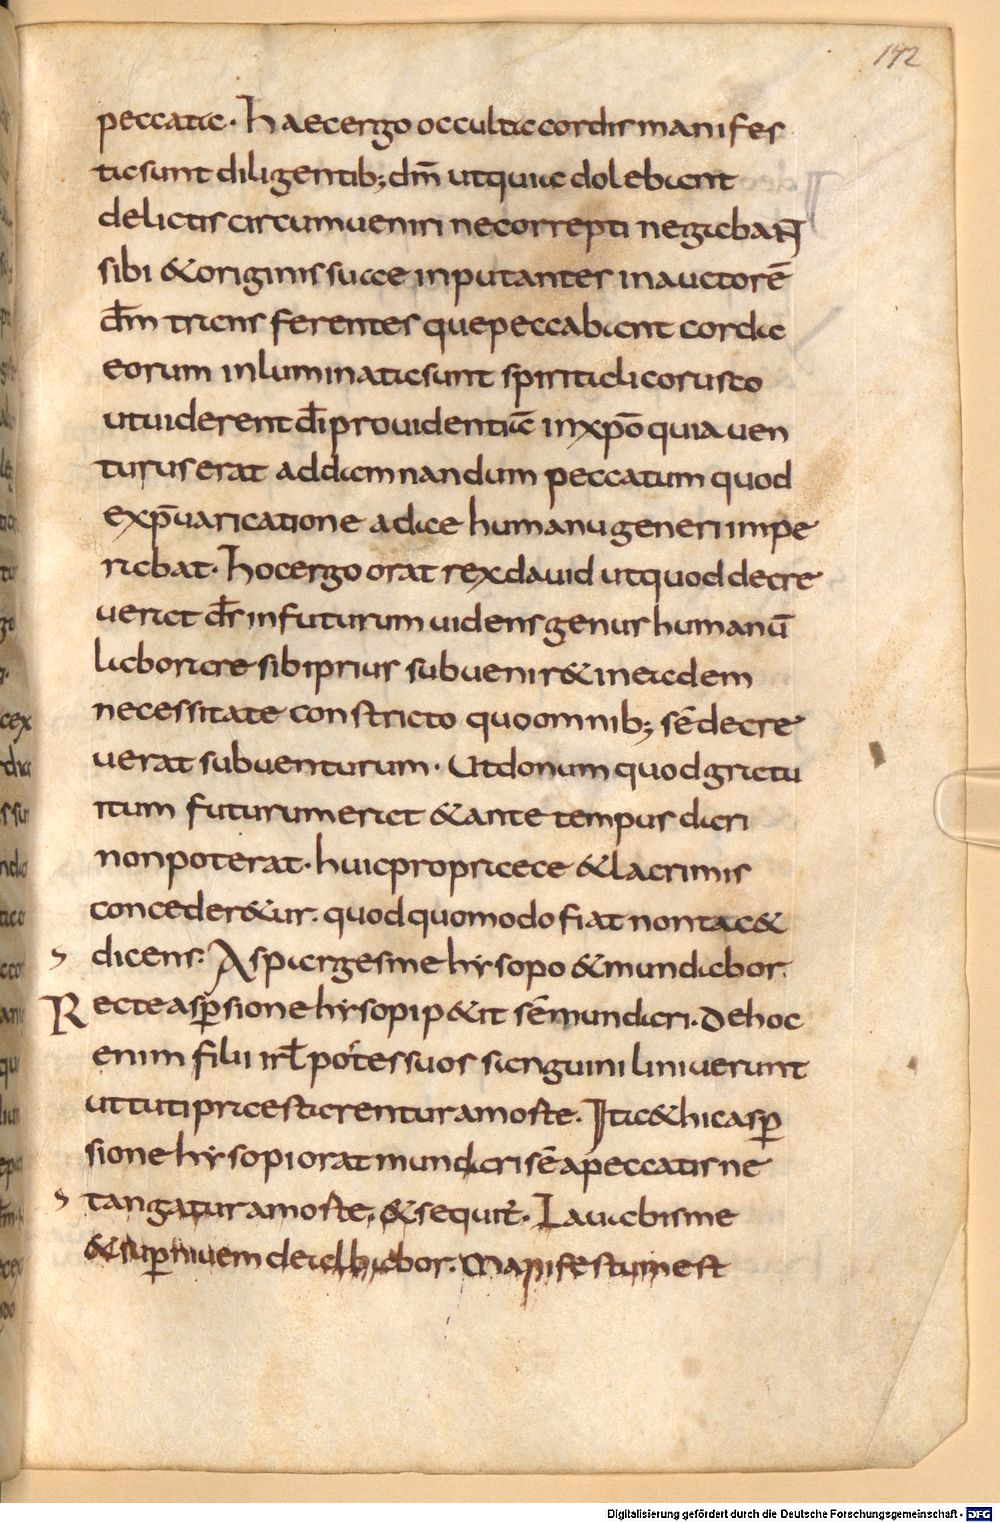 172
peccata. Haec ergo occulta cordis manifes
ta sunt diligentib; dm̄ ut quia dolebant
delictis circumueniri ne correpti negaban
sibi & originis suae inputantes in auctorē
dm̄ trans ferentes que peccabant corda
eorum inluminata sunt spiritali corusco
ut uiderent dī prouidentiā in xp̄o quia uen
turus erat ad damnandum peccatum quod
ex p̄uaricatione adae humanu generi impe
rabat. Hoc ergo orat rex dauid ut quod decre
uerat ds̄ in futurum uidens genus humanū
laborare sibi prius subuenir& in eadem
necessitate constricto quo omnib; sē decre
uerat subuenturum. Ut donum quod gratu
itum futurum erat & ante tempus dari
non poterat. huic propriaece & lacrimis
conceder&ur. quod quomodo fiat non tac&
dicens: Asparges me hysopo & mundabor.
Recte aspersione hysopi p&it sē mundari. De hoc
enim filii irl̄ postes suos sanguini liniuerunt
ut tuti praestarentur a moste. Ita & hic asp̱
sione hysopi orat mundari sē a peccatis ne
tangatur a moste. & sequit̄. Lauabis me
& sup̱ niuem dealbabor. Manifestum est
Digitalisierung gefördert durch die Deutsche Forschungsgemeinschaft - DFG